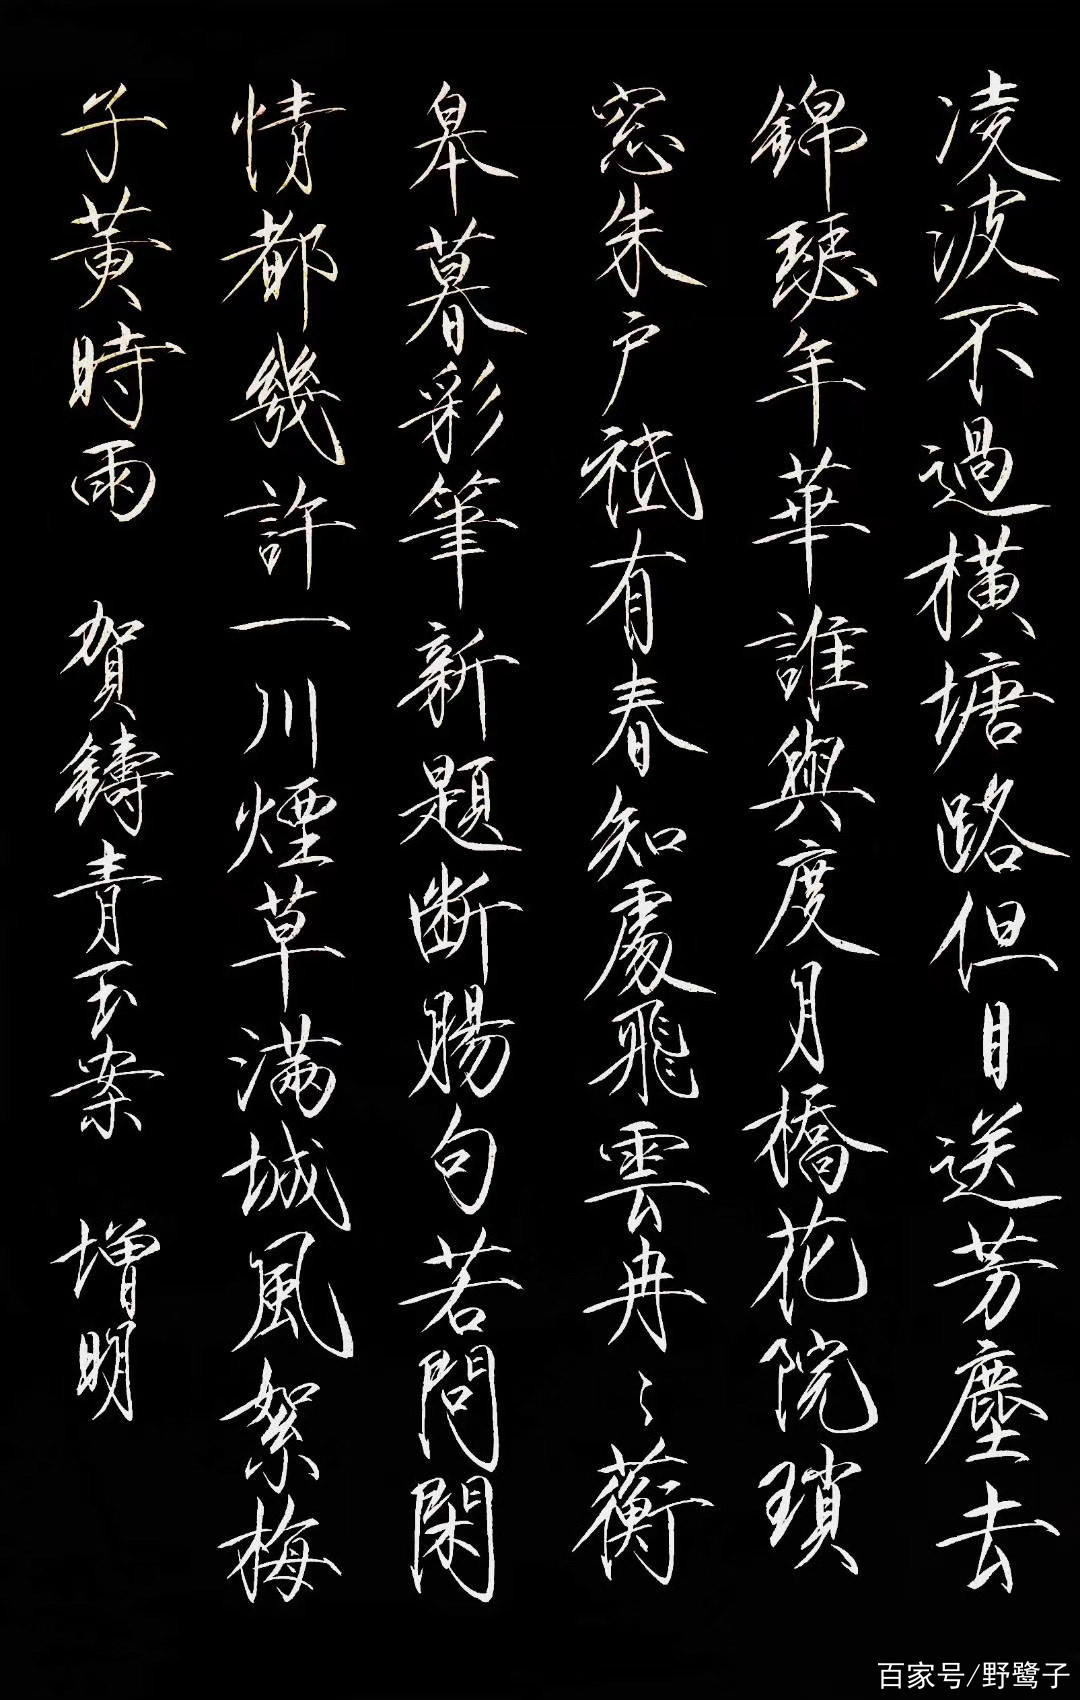 凌波不過橫塘路但目送芳塵去
錦瑟年華誰與度月橋花院瑣
窓朱戶祗有春知處飛雲冉〻蘅
皋暮彩筆新題斷腸句若問閑
情都幾許一川煙草滿城風絮梅
子黃時雨 賀鑄青玉案 增明
百家号/野鹭子